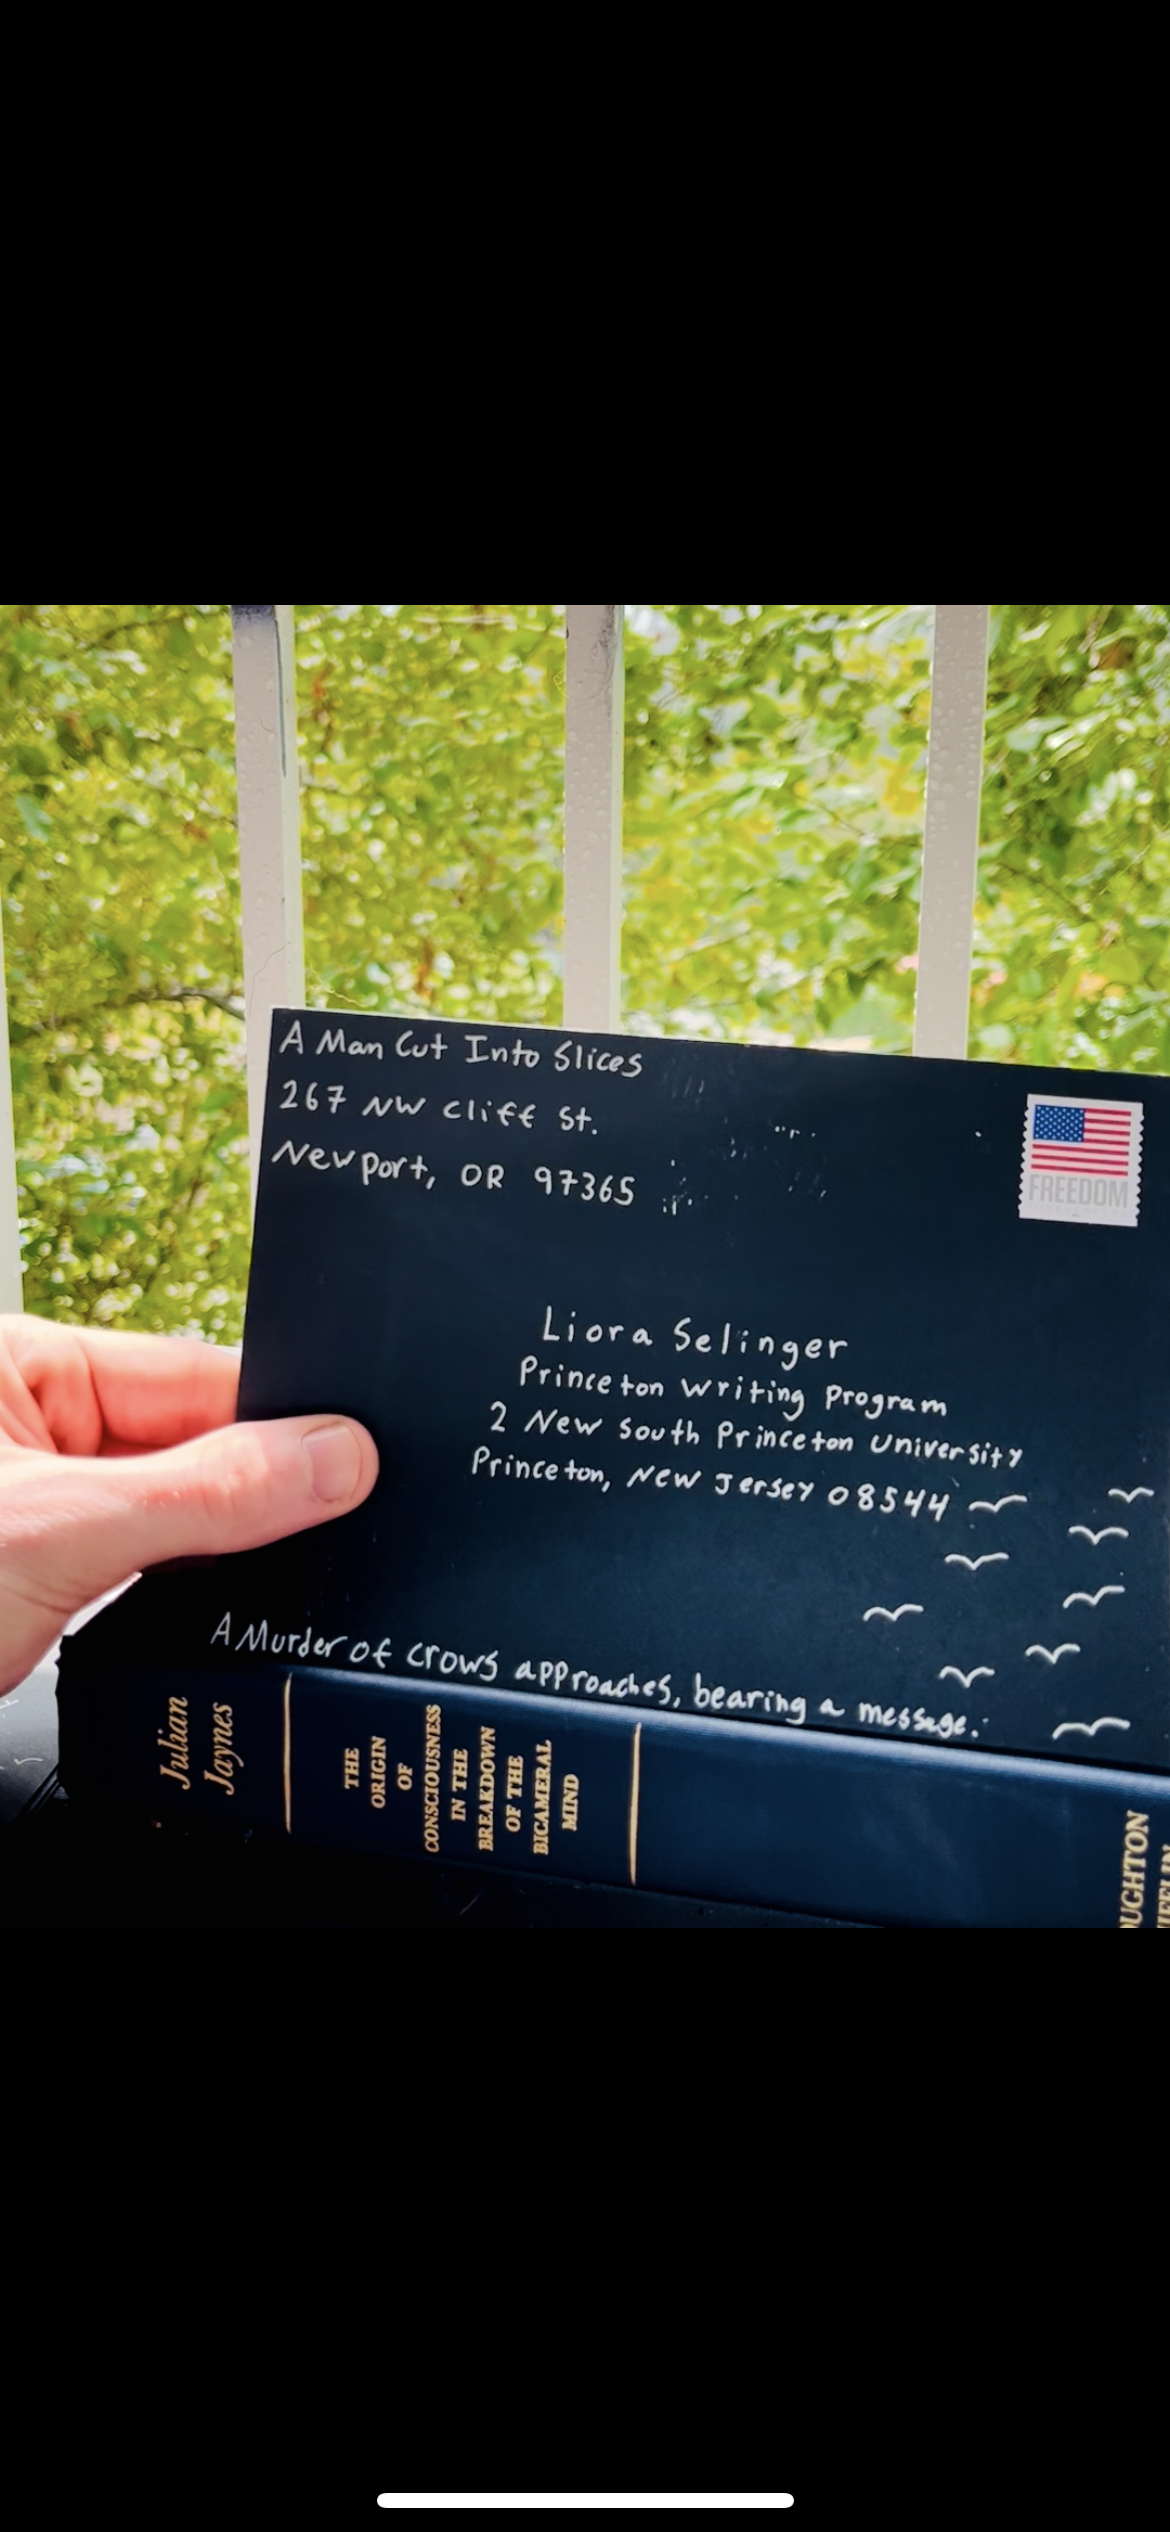 A Man Cut Into Slices
267 NW Cliff St.
Newport, OR 97365
FREEDOM
Liora Selinger
Princeton Writing Program
2 New South Princeton University
Princeton, New Jersey 08544
A Murder of crows approaches, bearing a message.
Julian
Jaynes
THE
ORIGIN
OF
CONSCIOUSNESS
IN THE
BREAKDOWN
OF THE
BICAMERAL
MIND
OUGHTON